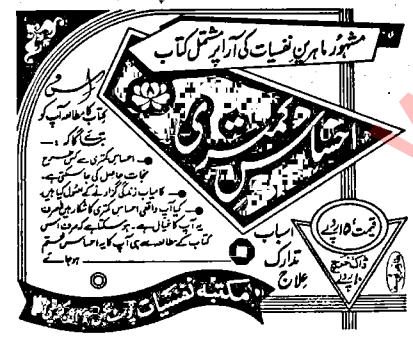 مشہور ماہرین نفسیات کی آرا پر مشتمل کتاب
احساس کمتری
اس
کتاب کا مطالعہ آپ کو
بتائے گا کہ :۔
احساس کمتری سے کس طرح
نجات حاصل کی جا سکتی ہے۔
کامیاب زندگی گزارنے کے اصول کیا ہیں۔
کیا آپ واقعی احساس کمتری کا شکار ہیں یا صرف
یہ آپ کا خیال ہے۔ ہو سکتا ہے کہ صرف اس
کتاب کے مطالعہ سے ہی آپ کا یہ احساس ختم
ہو جائے
اسباب
تدارک
علاج
قیمت: ۱۵ روپے
ڈاک خرچ
۱۰ روپے
مکتبہ نفسیات پوسٹ بکس کراچی